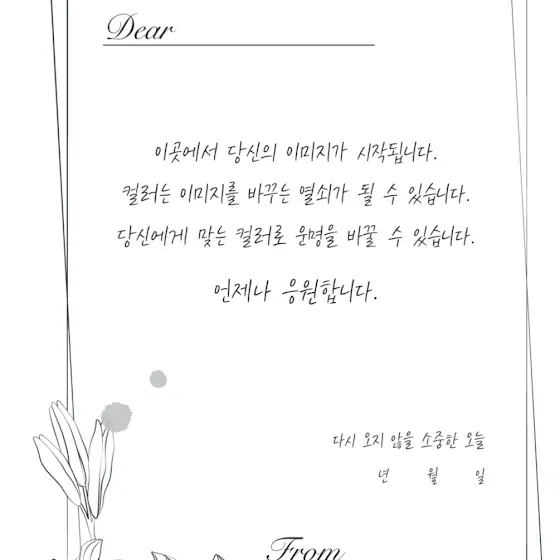 Dear
이곳에서 당신의 이미지가 시작됩니다.
컬러는 이미지를 바꾸는 열쇠가 될 수 있습니다.
당신에게 맞는 컬러로 운명을 바꿀 수 있습니다.
언제나 응원합니다.
다시 오지 않을 소중한 오늘
년 월 일
From